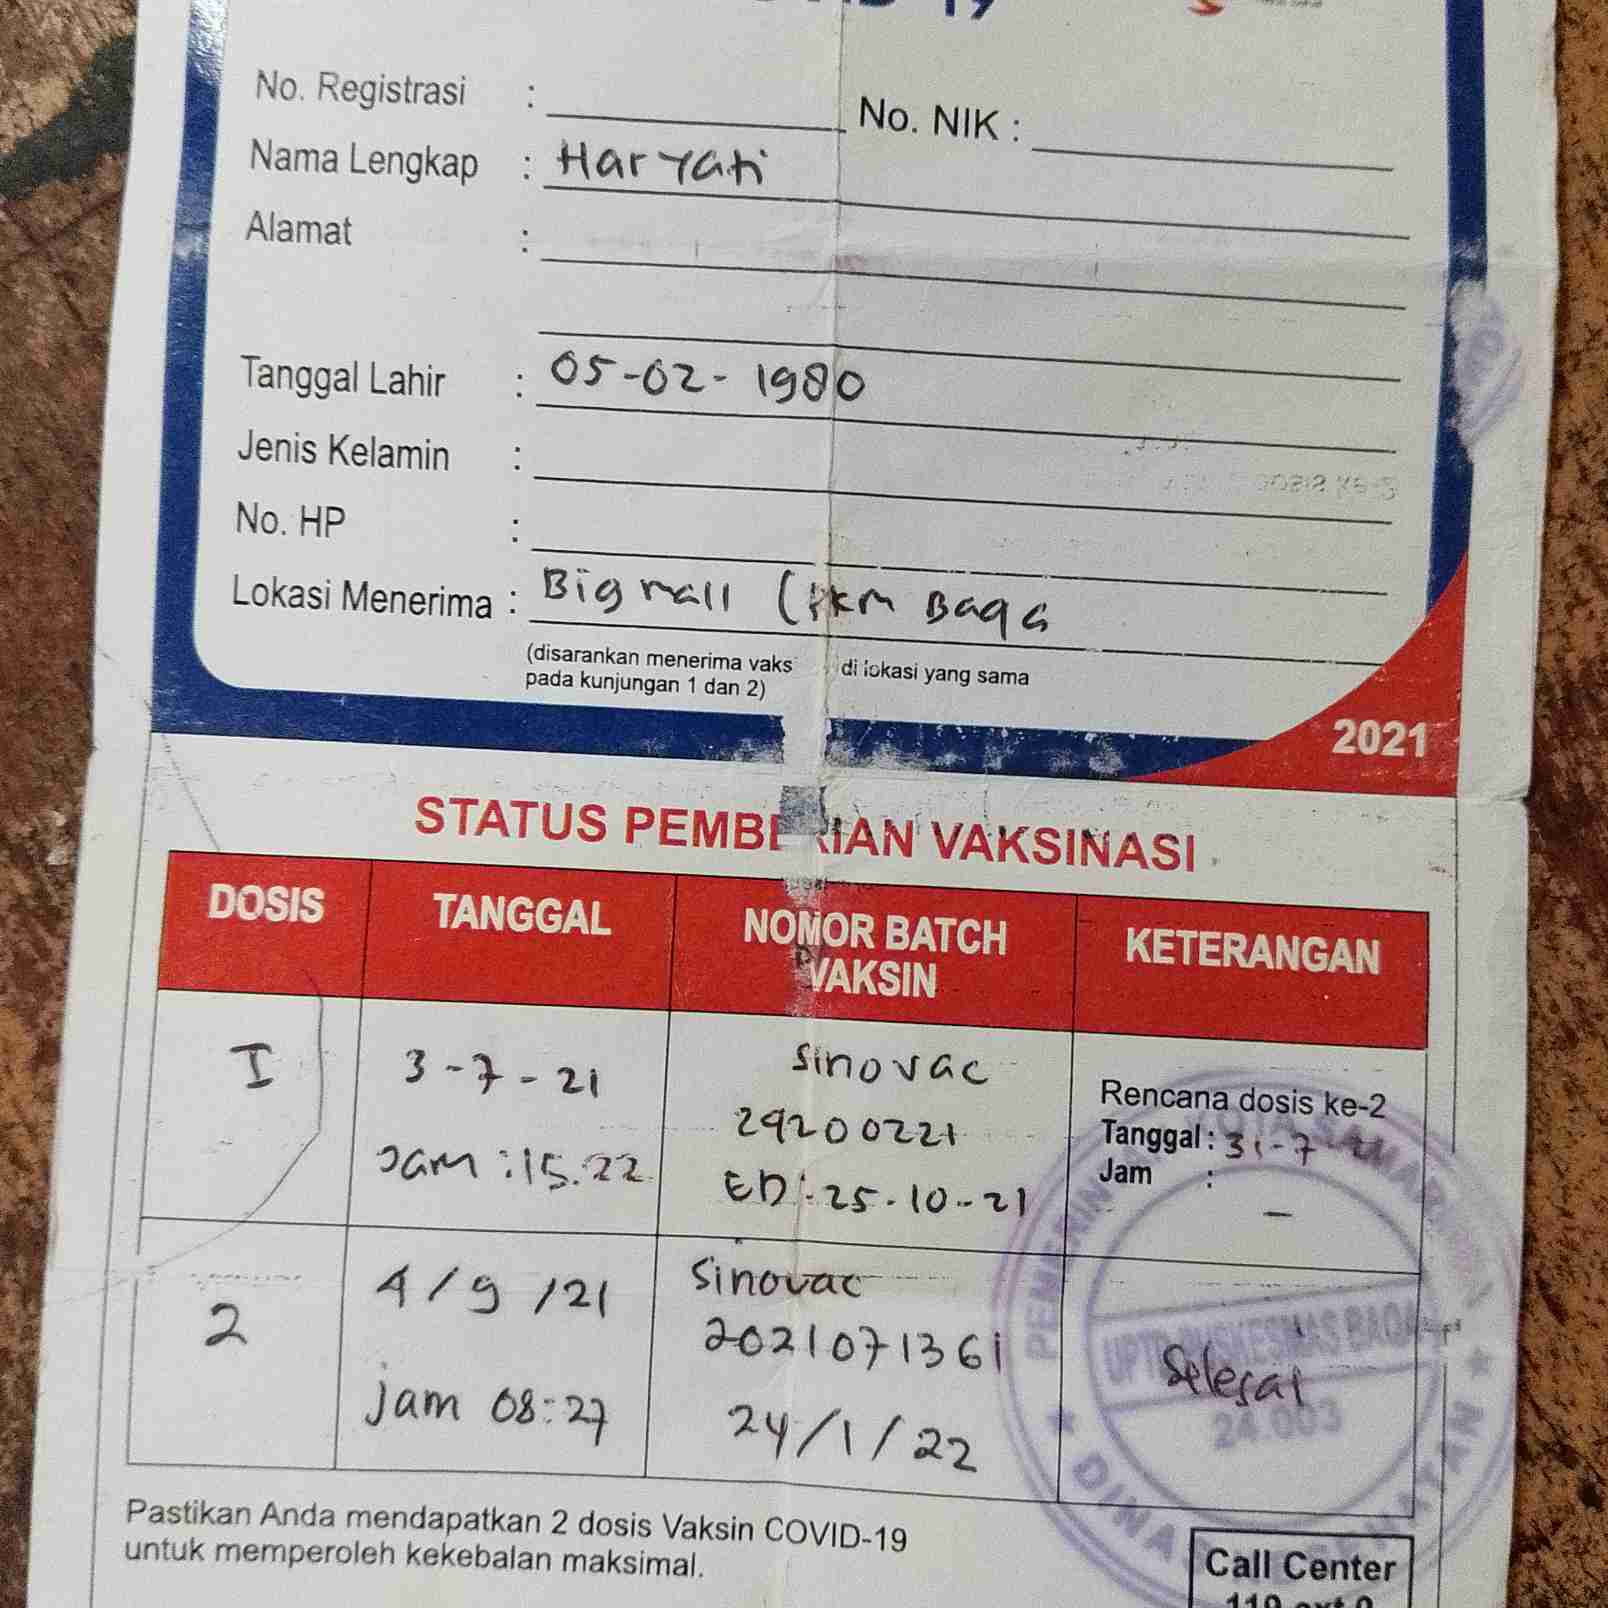 No. Registrasi :
No. NIK :
Nama Lengkap : Haryati
Alamat :
Tanggal Lahir : 05-02-1980
Jenis Kelamin :
No. HP :
Lokasi Menerima : Big mall (PKM Baqa
(disarankan menerima vaks di lokasi yang sama
pada kunjungan 1 dan 2)
2021
STATUS PEMBERIAN VAKSINASI
DOSIS TANGGAL NOMOR BATCH VAKSIN KETERANGAN
I
3-7-21
Jam : 15.22
Sinovac
29200221
ED : 25-10-21
Rencana dosis ke-2
Tanggal : 31-7-21
Jam : -
2
4/9/21
jam 08:27
Sinovac
2021071361
24/1/22
Selesai
UPTD PUSKESMAS BAQA
24.003
Pastikan Anda mendapatkan 2 dosis Vaksin COVID-19
untuk memperoleh kekebalan maksimal.
Call Center